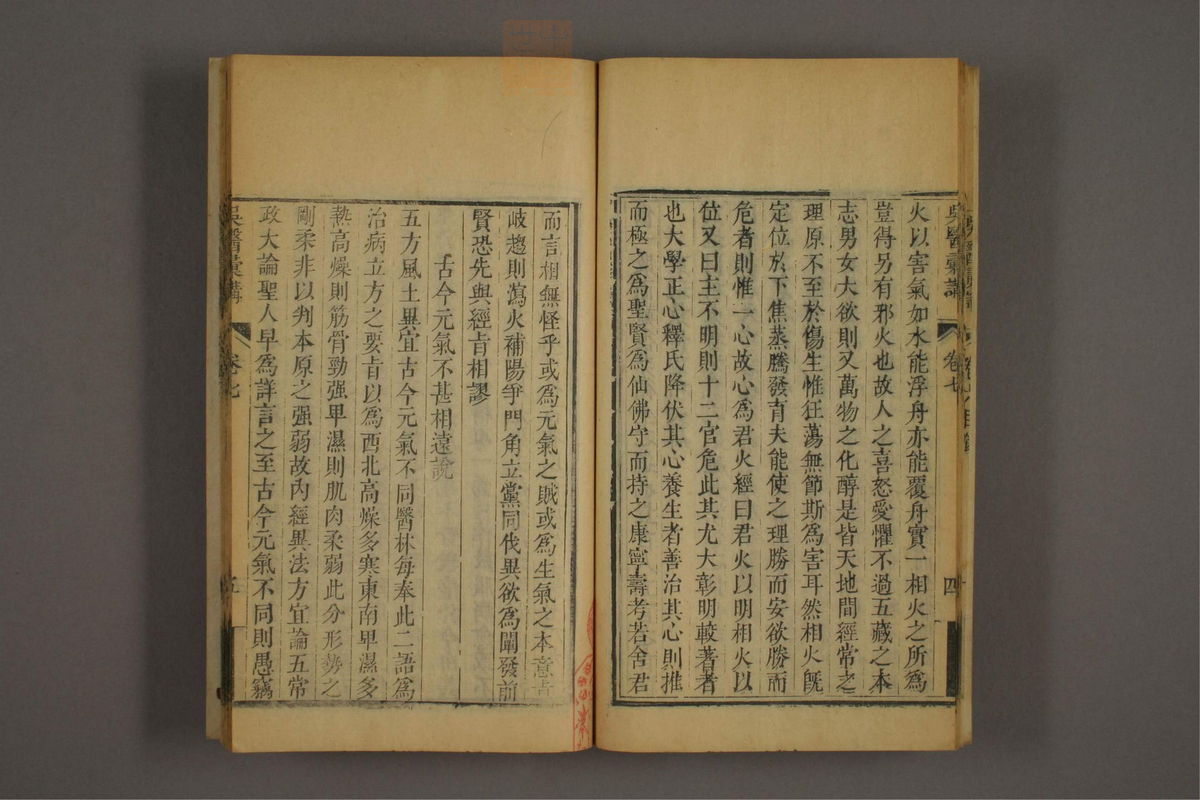 吳醫彙講
卷七
四
火以害氣如水能浮舟亦能覆舟實一相火之所爲
豈得另有邪火也故人之喜怒愛懼不過五藏之本
志男女大欲則又萬物之化醇是皆天地間經常之
理原不至於傷生惟狂蕩無節斯爲害耳然相火旣
定位於下焦蒸騰發育夫能使之理勝而安欲勝而
危者則惟一心故心爲君火經曰君火以明相火以
位又曰主不明則十二官危此其尤大彰明較著者
也大學正心釋氏降伏其心養生者善治其心則推
而極之爲聖賢爲仙佛守而持之康寧壽考若舍君
而言相無怪乎或爲元氣之賊或爲生氣之本意旨
岐趨則瀉火補陽爭門角立黨同伐異欲爲闡發前
賢恐先與經旨相謬
古今元氣不甚相遠說
五方風土異宜古今元氣不同醫林每奉此二語爲
治病立方之要旨以爲西北高燥多寒東南卑濕多
熱高燥則筋骨勁强卑濕則肌肉柔弱此分形勢之
剛柔非以判本原之强弱故內經異法方宜論五常
政大論聖人早爲詳言之至古今元氣不同則愚竊
吳醫彙講
卷七
五